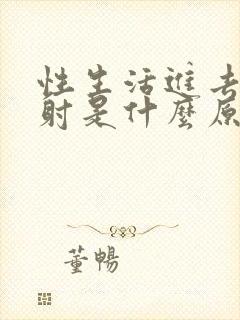 性生活进去
射是什麼原
董暢